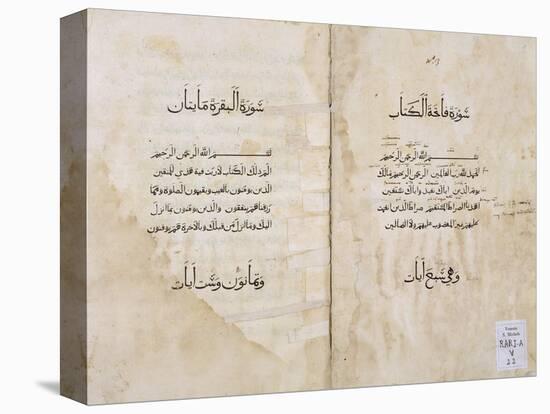 سورة فاتحة الكتاب
بسم الله الرحمن الرحيم
الحمد لله رب العالمين الرحمن الرحيم مالك
يوم الدين اياك نعبد واياك نستعين
اهدنا الصراط المستقيم صراط الذين انعمت
عليهم غير المغضوب عليهم ولا الضالين
وهي سبع آيات
سورة البقرة مايتان
بسم الله الرحمن الرحيم
الم ذلك الكتاب لا ريب فيه هدى للمتقين
الذين يومنون بالغيب ويقيمون الصلوة ومما
رزقناهم ينفقون والذين يومنون بما انزل
اليك وما انزل من قبلك وبالآخرة هم يوقنون
وثمانون وست آيات
Venezia
S. Michele
RARI-A
V
22